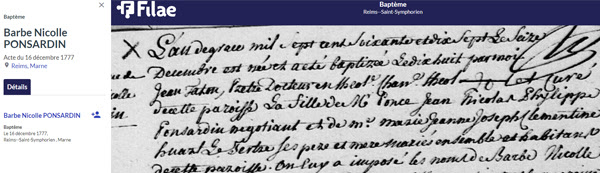 Baptême
Barbe Nicolle
PONSARDIN
Acte du 16 décembre 1777
Reims, Marne
Détails
Barbe Nicolle PONSARDIN
Baptême
Le 16 décembre 1777,
Reims - Saint-Symphorien , Marne
Filae
Baptême
Reims - Saint-Symphorien
L'an de grace mil sept cent soixante et dix sept le seize
Decembre est née et a été baptizée le dix huit par moi
Jean prêtre Docteur en et curé
de cette paroisse La fille de Mr Ponce jean Nicolas Philippe
Ponsardin negotiant et de me marie jeanne Joseph Clementine
huart Le Tertre ses pere et mere mariés ensemble et habitants
de cette paroisse. On luy a imposé les noms de Barbe Nicolle